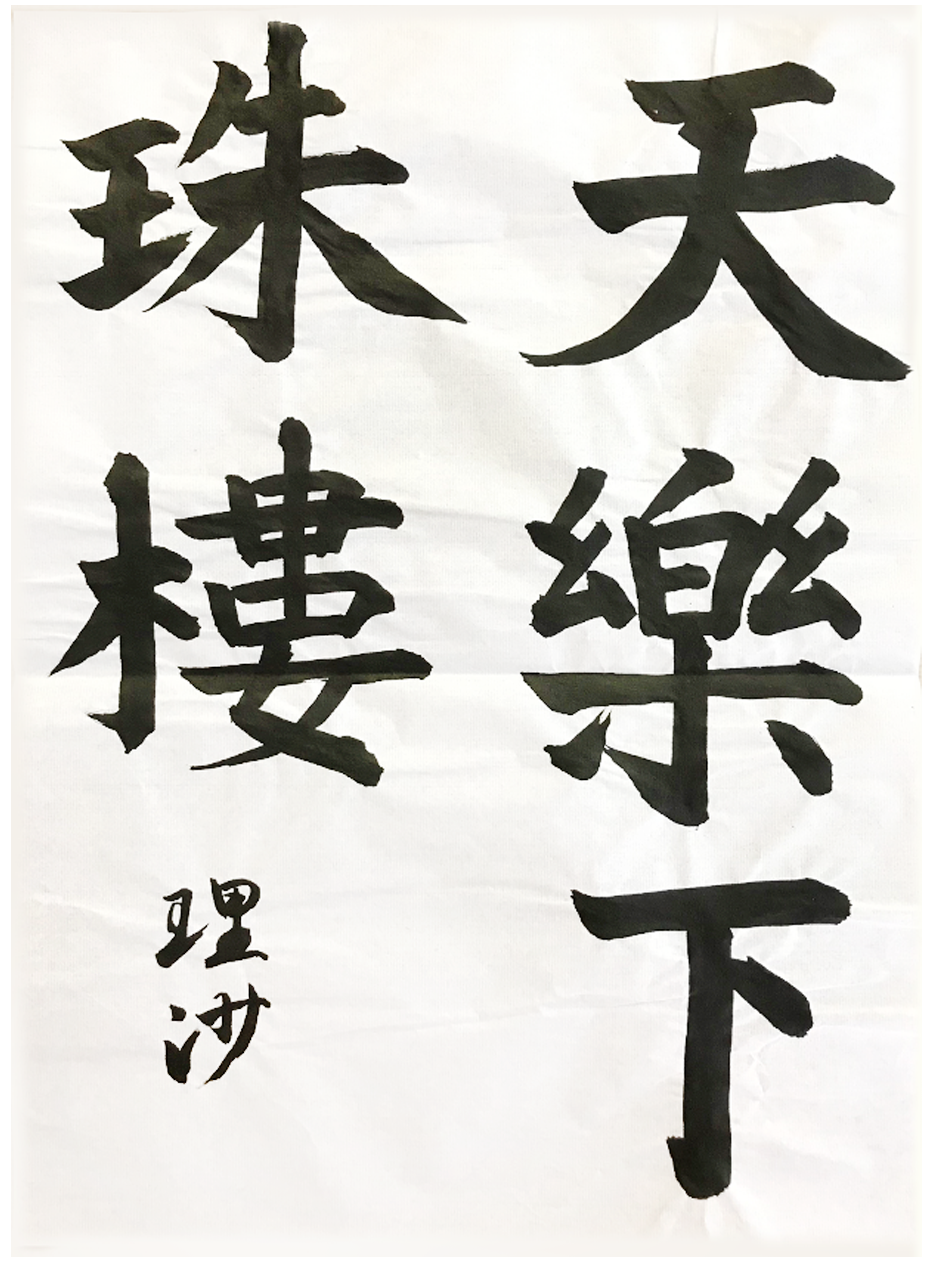 天樂下
珠樓
理沙